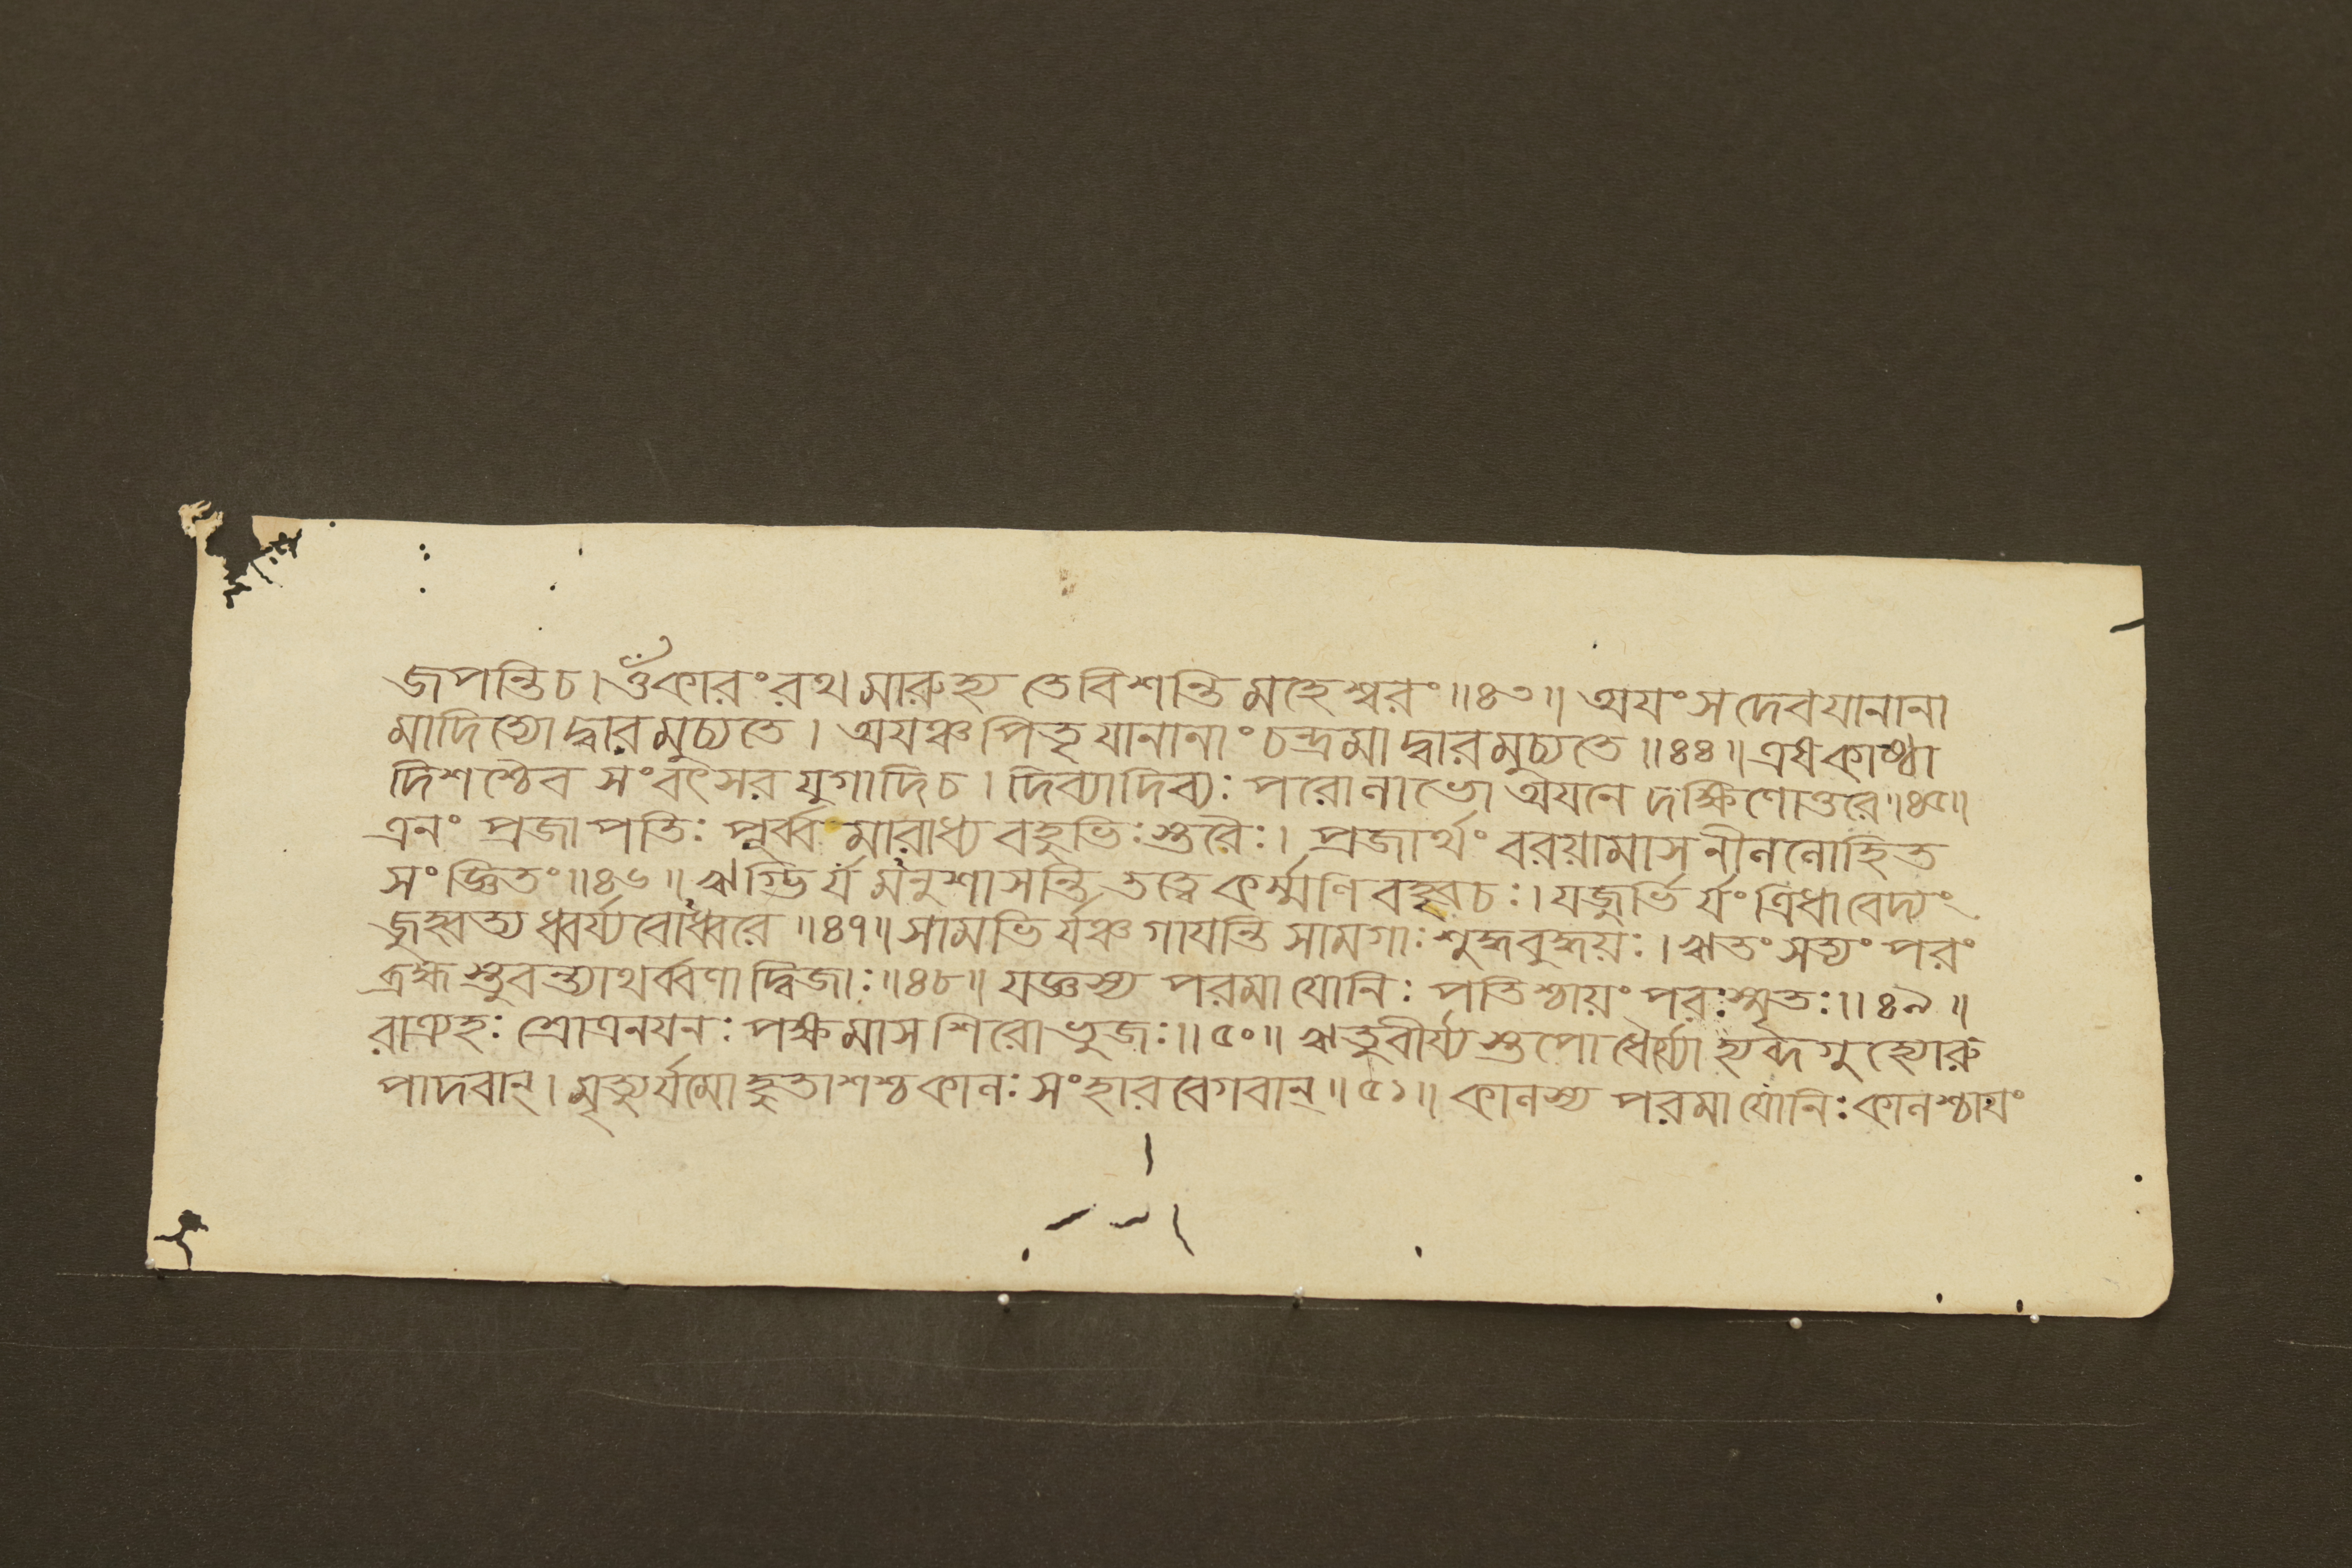 জপন্তিচ। ওঁকারং রথমারুহ্য তেবিশন্তি মহেশ্বরং॥৪৩॥ অযং স দেবযানানা
মাদিত্যোদ্বারমুচ্যতে। অযঞ্চ পিতৃযানানাং চন্দ্রমাদ্বারমুচ্যতে॥৪৪॥ এষকাষ্ঠা
দিশশ্চৈব সংবৎসরযুগাদিচ। দিব্যাদিব্যঃ পরোলাভো অযনে দক্ষিণোত্তরে॥৪৫॥
এনং প্রজাপতিঃ পূর্ব্বমারাধ্য বহুভিঃস্তবৈঃ। প্রজার্থং বরয়ামাস নীললোহিত
সংজ্ঞিতং॥৪৬॥ ঋগ্ভির্যমনুশাসন্তি তত্ত্বে কর্ম্মণি বহ্বৃচঃ। যজুর্ভির্যং ত্রিধাবেদ্যং
জুহ্বত্যধ্বর্য্যবোধ্বরে॥৪৭॥ সামভির্যঞ্চ গাযন্তি সামগাঃ শুদ্ধবুদ্ধয়ঃ। ঋতং সত্যং পরং
ব্রহ্ম স্তুবন্ত্যাথর্ব্বণাদ্বিজাঃ॥৪৮॥ যজ্ঞস্য পরমাযোনিঃ পতিশ্চায়ং পরঃস্মৃতঃ॥৪৯॥
রাত্র্যহঃ শ্রোত্রনযনঃ পক্ষমাসশিরোভুজঃ॥৫০॥ ঋতুবীর্য্যস্তপোধৈর্য্যোহ্যব্দগুহ্যোরু
পাদবান্। মৃত্যুর্যমোহুতাশশ্চ কালঃ সংহারবেগবান্॥৫১॥ কালস্য পরমাযোনিঃ কালশ্চাযং